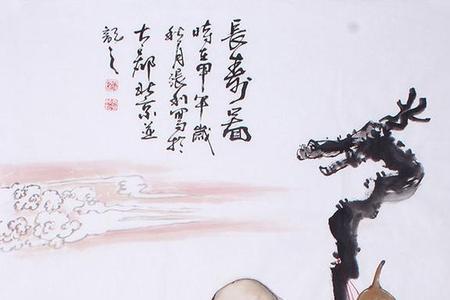 長壽圖
時在甲午年歲
秋月張利写於
古都北京並
記之